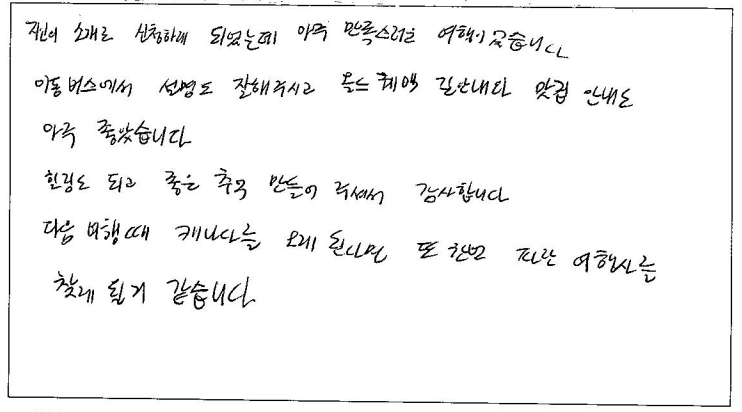 지인의 소개로 신청하게 되었는데 아주 만족스러운 여행이 였습니다
이동 버스에서 설명도 잘해주시고 길안내나 맛집 안내도
아주 좋았습니다
힐링도 되고 좋은 추억 만들어 주셔서 감사합니다
다음 여행때 캐나다를 오게 된다면 또 한번 파란 여행사를
찾게 될거 같습니다